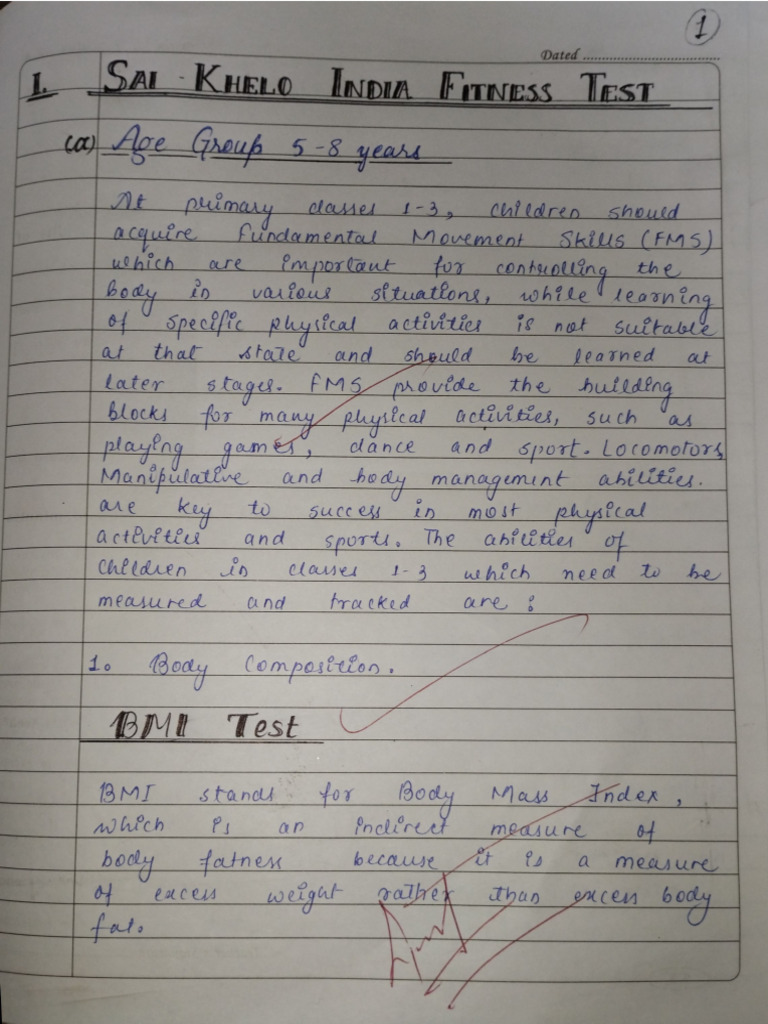 1
Dated
1. SAI - KHELO INDIA FITNESS TEST
(a) Age Group 5-8 years
At primary classes 1-3, children should
acquire Fundamental Movement Skills (FMS)
which are important for controlling the
body in various situations, while learning
of specific physical activities is not suitable
at that state and should be learned at
later stages. FMS provide the building
blocks for many physical activities, such as
playing games, dance and sport. Locomotors,
Manipulative and body management abilities.
are key to success in most physical
activities and sports. The abilities of
children in classes 1-3 which need to be
measured and tracked are :
1. Body Composition.
BMI Test
BMI stands for Body Mass Index,
which is an indirect measure of
body fatness because it is a measure
of excess weight rather than excess body
fat.